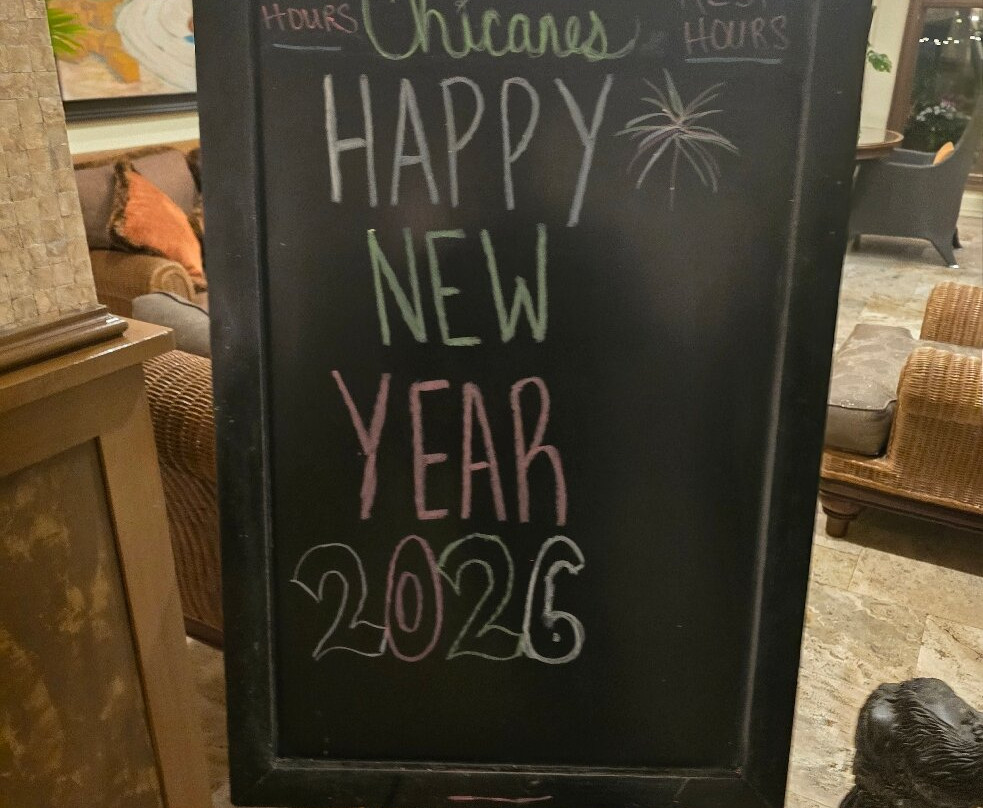 HOURS Chicanes HOURS
HAPPY
NEW
YEAR
2026